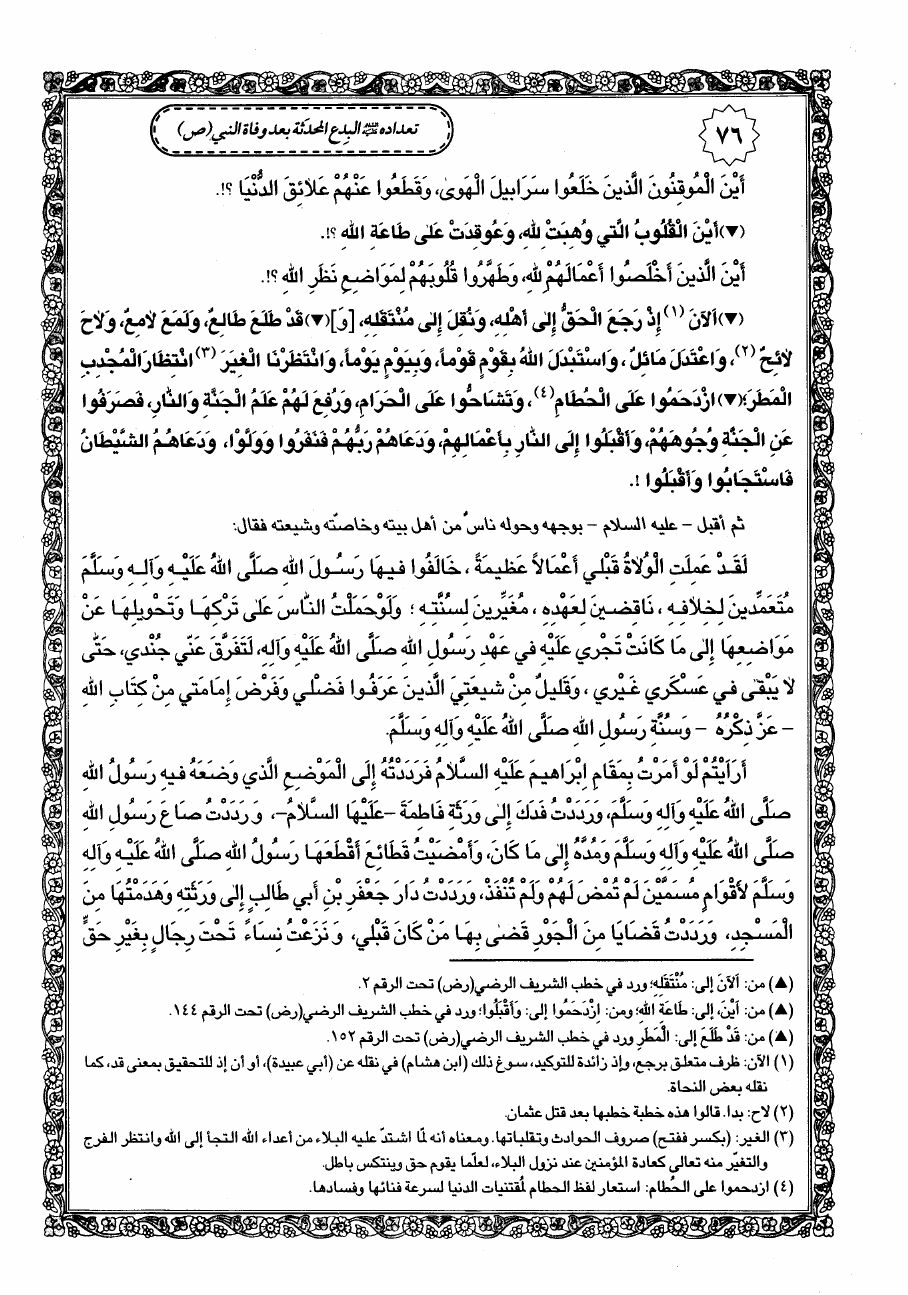 ٧٦
تعداده عليه السلام البدع المحدثة بعد وفاة النبي (ص)
أَيْنَ الْمُوقِنُونَ الَّذينَ خَلَعُوا سَرَابيلَ الْهَوىٰ، وَقَطَعُوا عَنْهُمْ عَلاَئِقَ الدُّنْيَا ؟!.
(▼)أَيْنَ الْقُلُوبُ الَّتي وُهِبَتْ لِلهِ، وَعُوقِدَتْ عَلىٰ طَاعَةِ اللهِ ؟!.
أَيْنَ الَّذينَ أَخْلَصُوا أَعْمَالَهُمْ لِلهِ، وَطَهَّرُوا قُلُوبَهُمْ لِمَوَاضِعِ نَظَرِ اللهِ ؟!.
(▼)اَلآنَ (١) إِذْ رَجَعَ الْحَقُّ إِلىٰ أَهْلِهِ، وَنُقِلَ إِلىٰ مُنْتَقَلِهِ، [وَ](▼)قَدْ طَلَعَ طَالِعٌ، وَلَمَعَ لاَمِعٌ، وَلاَحَ
لاَئِحٌ (٢)، وَاعْتَدَلَ مَائِلٌ، وَاسْتَبْدَلَ اللهُ بِقَوْمٍ قَوْماً، وَبِيَوْمٍ يَوْماً، وَانْتَظَرْنَا الْغِيَرَ (٣) انْتِظَارَ الْمُجْدِبِ
الْمَطَرَ؛(▼)ازْدَحَمُوا عَلَى الْحُطَامِ(٤)، وَتَشَاحُّوا عَلَى الْحَرَامِ، وَرُفِعَ لَهُمْ عَلَمُ الْجَنَّةِ وَالنَّارِ، فَصَرَفُوا
عَنِ الْجَنَّةِ وُجُوهَهُمْ، وَأَقْبَلُوا إِلَى النَّارِ بِأَعْمَالِهِمْ، وَدَعَاهُمْ رَبُّهُمْ فَنَفَرُوا وَوَلَّوْا، وَدَعَاهُمُ الشَّيْطَانُ
فَاسْتَجَابُوا وَأَقْبَلُوا !.
ثم أقبل - عليه السلام - بوجهه وحوله ناسٌ من أهل بيته وخاصّته وشيعته فقال:
لَقَدْ عَمِلَتِ الْوُلاَةُ قَبْلي أَعْمَالاً عَظيمَةً، خَالَفُوا فيهَا رَسُولَ اللهِ صَلَّى اللهُ عَلَيْهِ وَآلِهِ وَسَلَّمَ
مُتَعَمِّدينَ لِخِلاَفِهِ، نَاقِضينَ لِعَهْدِهِ، مُغَيِّرينَ لِسُنَّتِهِ؛ وَلَوْ حَمَلْتُ النَّاسَ عَلىٰ تَرْكِهَا وَتَحْويلِهَا عَنْ
مَوَاضِعِهَا إِلىٰ مَا كَانَتْ تَجْري عَلَيْهِ في عَهْدِ رَسُولِ اللهِ صَلَّى اللهُ عَلَيْهِ وَآلِهِ، لَتَفَرَّقَ عَنّي جُنْدي، حَتّىٰ
لاَ يَبْقىٰ في عَسْكَري غَيْري، وَقَليلٌ مِنْ شيعَتِيَ الَّذينَ عَرَفُوا فَضْلي وَفَرْضَ إِمَامَتي مِنْ كِتَابِ اللهِ
- عَزَّ ذِكْرُهُ - وَسُنَّةِ رَسُولِ اللهِ صَلَّى اللهُ عَلَيْهِ وَآلِهِ وَسَلَّمَ.
أَرَأَيْتُمْ لَوْ أَمَرْتُ بِمَقَامِ إِبْرَاهيمَ عَلَيْهِ السَّلاَمُ فَرَدَدْتُهُ إِلَى الْمَوْضِعِ الَّذي وَضَعَهُ فيهِ رَسُولُ اللهِ
صَلَّى اللهُ عَلَيْهِ وَآلِهِ وَسَلَّمَ، وَرَدَدْتُ فَدَكَ إِلىٰ وَرَثَةِ فَاطِمَةَ -عَلَيْهَا السَّلاَمُ-، وَرَدَدْتُ صَاعَ رَسُولِ اللهِ
صَلَّى اللهُ عَلَيْهِ وَآلِهِ وَسَلَّمَ وَمُدَّهُ إِلىٰ مَا كَانَ، وَأَمْضَيْتُ قَطَائِعَ أَقْطَعَهَا رَسُولُ اللهِ صَلَّى اللهُ عَلَيْهِ وَآلِهِ
وَسَلَّمَ لأَقْوَامٍ مُسَمَّيْنَ لَمْ تُمْضَ لَهُمْ وَلَمْ تُنْفَذْ، وَرَدَدْتُ دَارَ جَعْفَرِ بْنِ أَبي طَالِبٍ إِلىٰ وَرَثَتِهِ وَهَدَمْتُهَا مِنَ
الْمَسْجِدِ، وَرَدَدْتُ قَضَايَا مِنَ الْجَوْرِ قَضىٰ بِهَا مَنْ كَانَ قَبْلي، وَنَزَعْتُ نِسَاءً تَحْتَ رِجَالٍ بِغَيْرِ حَقٍّ
(▲) من: اَلآنَ إلى: مُنْتَقَلِهِ؛ ورد في خطب الشريف الرضي(رض) تحت الرقم ٢.
(▲) من: أَيْنَ، إلى: طَاعَةِ اللهِ؛ ومن: اِزْدَحَمُوا إلى: وَأَقْبَلُوا؛ ورد في خطب الشريف الرضي(رض) تحت الرقم ١٤٤.
(▲) من: قَدْ طَلَعَ إلى: الْمَطَرِ ورد في خطب الشريف الرضي(رض) تحت الرقم ١٥٢.
(١) الآن: ظرف متعلق برجع، وإذ زائدة للتوكيد، سوغ ذلك (ابن هشام) في نقله عن (أبي عبيدة)، أو أن إذ للتحقيق بمعنى قد، كما
نقله بعض النحاة.
(٢) لاح: بدا. قالوا هذه خطبة خطبها بعد قتل عثمان.
(٣) الغير: (بكسر ففتح) صروف الحوادث وتقلباتها. ومعناه أنه لمّا اشتدّ عليه البلاء من أعداء الله التجأ إلى الله وانتظر الفرج
والتغيّر منه تعالى كعادة المؤمنين عند نزول البلاء، لعلّما يقوم حق وينتكس باطل.
(٤) ازدحموا على الحُطام: استعار لفظ الحطام لمُقتنيات الدنيا لسرعة فنائها وفسادها.